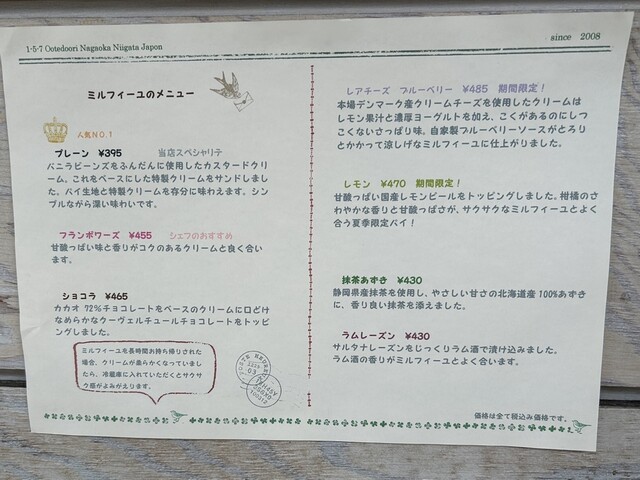 1-5-7 Ootedoori Nagaoka Niigata Japon
since 2008
ミルフィーユのメニュー
人気NO.1
プレーン ¥395 当店スペシャリテ
バニラビーンズをふんだんに使用したカスタードクリ
ーム。これをベースにした特製クリームをサンドしまし
た。パイ生地と特製クリームを存分に味わえます。シン
プルながら深い味わいです。
フランボワーズ ¥455 シェフのおすすめ
甘酸っぱい味と香りがコクのあるクリームと良く合い
ます。
ショコラ ¥465
カカオ 72%チョコレートをベースのクリームに口どけ
なめらかなクーヴェルチュールチョコレートをトッピ
ングしました。
ミルフィーユを長時間お持ち帰りされた
場合、クリームが柔らかくなっていまし
たら、冷蔵庫に入れていただくとサクサ
ク感がよみがえります。
レアチーズ ブルーベリー ¥485 期間限定!
本場デンマーク産クリームチーズを使用したクリームは
レモン果汁と濃厚ヨーグルトを加え、こくがあるのにしつ
こくないさっぱり味。自家製ブルーベリーソースがとろり
とかかって涼しげなミルフィーユに仕上がりました。
レモン ¥470 期間限定!
甘酸っぱい国産レモンピールをトッピングしました。柑橘のさ
わやかな香りと甘酸っぱさが、サクサクなミルフィーユとよく
合う夏季限定パイ!
抹茶あずき ¥430
静岡県産抹茶を使用し、やさしい甘さの北海道産 100%あずき
に、香り良い抹茶を添えました。
ラムレーズン ¥430
サルタナレーズンをじっくりラム酒で漬け込みました。
ラム酒の香りがミルフィーユとよく合います。
価格は全て税込み価格です。